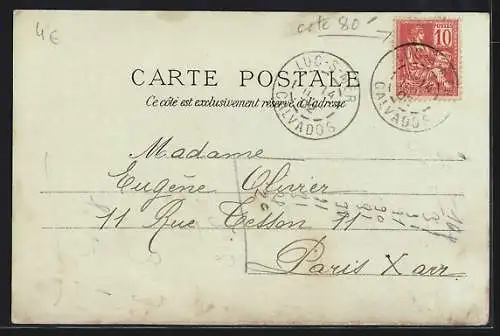 4€
cote 80
10
LUC-S-MER
CALVADOS
CALVADOS
CARTE POSTALE
Ce côté est exclusivement réservé à l'adresse
Madame
Eugène Olivier
11 Rue Tesson 11
Paris X arr